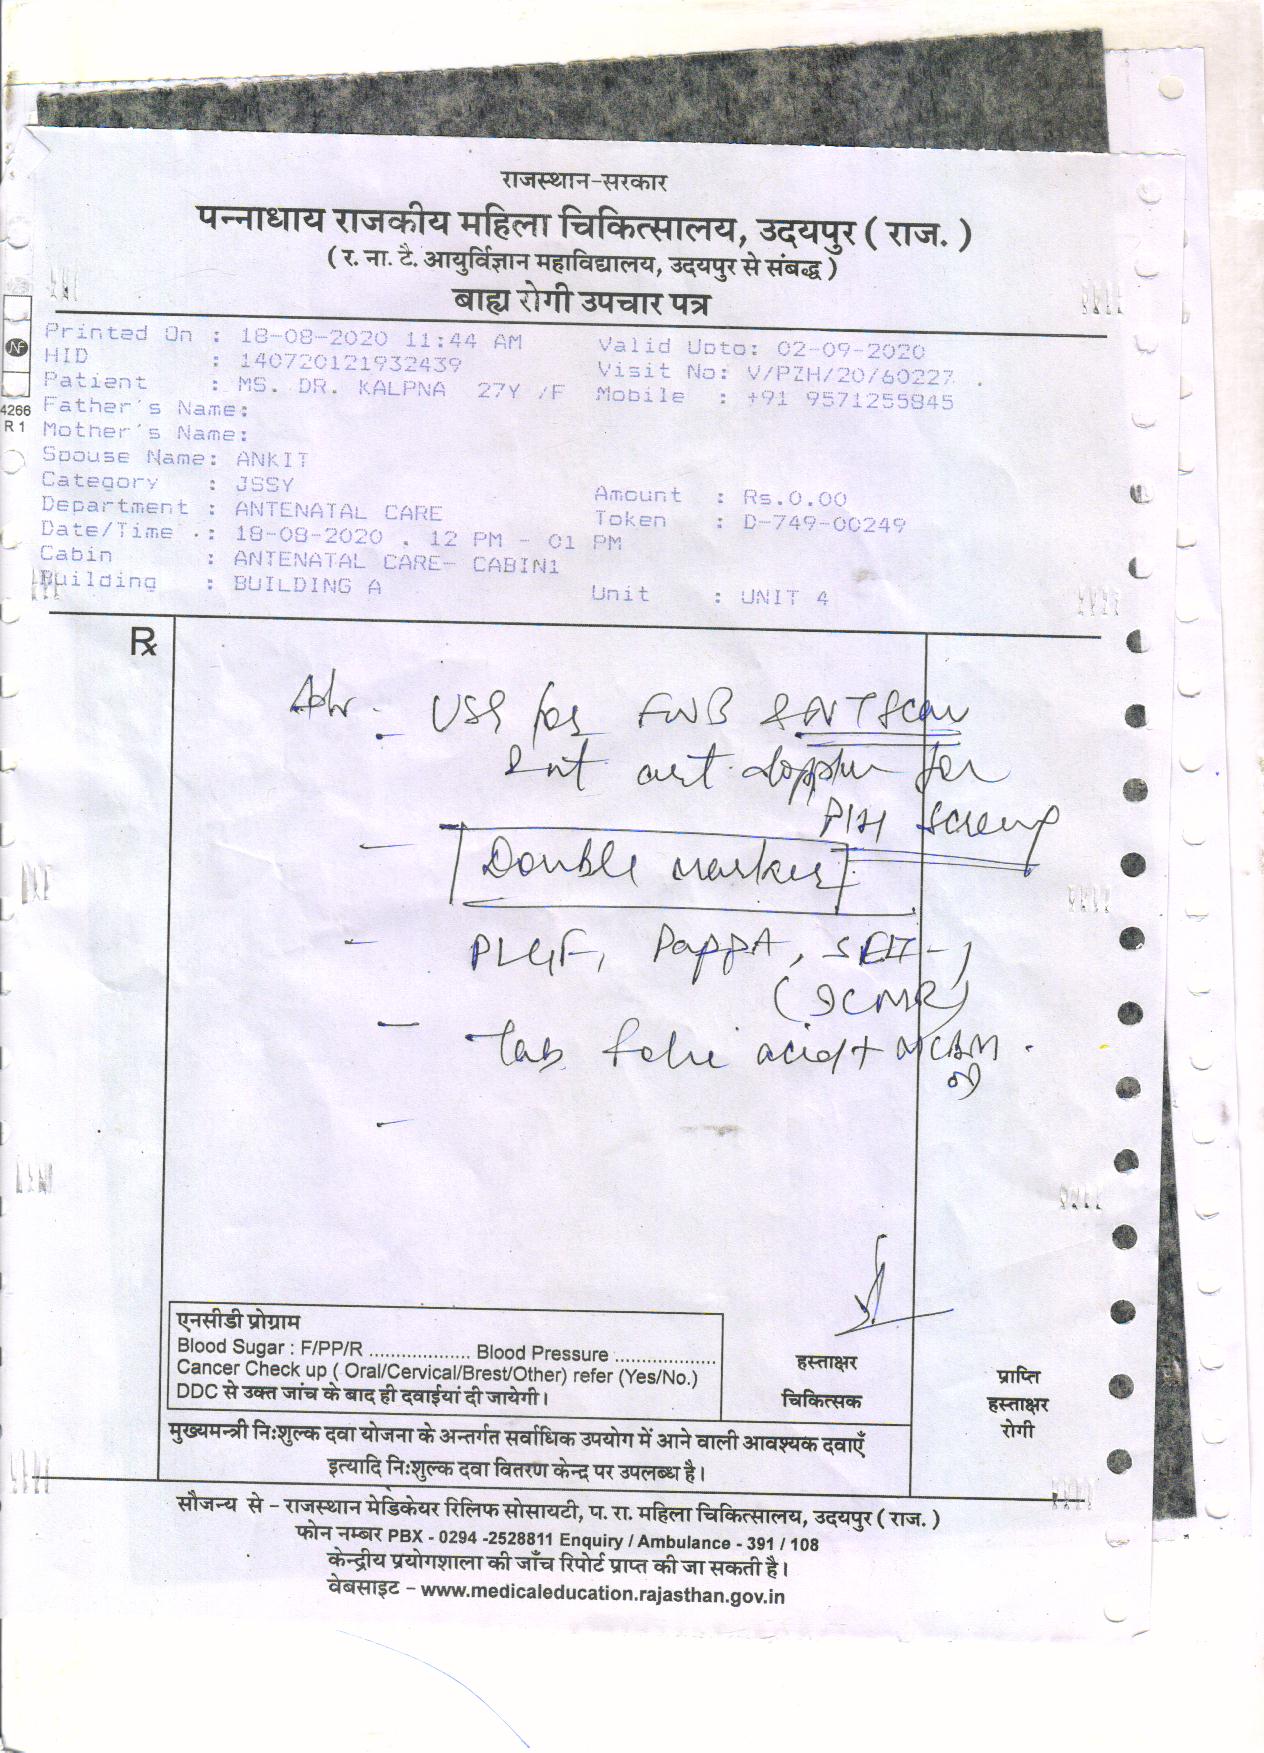 राजस्थान-सरकार
पन्नाधाय राजकीय महिला चिकित्सालय, उदयपुर ( राज. )
( र. ना. टै. आयुर्विज्ञान महाविद्यालय, उदयपुर से संबद्ध )
बाह्य रोगी उपचार पत्र
Printed On : 18-08-2020 11:44 AM Valid Upto: 02-09-2020
HID : 140720121932439 Visit No: V/PZH/20/60227
Patient : MS. DR. KALPNA 27Y /F Mobile : +91 9571255845
4266 Father's Name:
R 1 Mother's Name:
Spouse Name: ANKIT
Category : JSSY Amount : Rs.0.00
Department : ANTENATAL CARE Token : D-749-00249
Date/Time .: 18-08-2020 . 12 PM - 01 PM
Cabin : ANTENATAL CARE- CABIN1
Building : BUILDING A Unit : UNIT 4
Rx
Adv - USG for FWB & NT Scan
art doppler for
PIH
- Double marker
- PLGF, PappA,
(ICMR)
- Tab folic acid +
-
एनसीडी प्रोग्राम
Blood Sugar : F/PP/R ................... Blood Pressure ...................
Cancer Check up ( Oral/Cervical/Brest/Other) refer (Yes/No.)
DDC से उक्त जांच के बाद ही दवाईयां दी जायेगी।
हस्ताक्षर
चिकित्सक
प्राप्ति
हस्ताक्षर
रोगी
मुख्यमन्त्री निःशुल्क दवा योजना के अन्तर्गत सर्वाधिक उपयोग में आने वाली आवश्यक दवाएँ
इत्यादि निःशुल्क दवा वितरण केन्द्र पर उपलब्ध है।
सौजन्य से – राजस्थान मेडिकेयर रिलिफ सोसायटी, प. रा. महिला चिकित्सालय, उदयपुर ( राज. )
फोन नम्बर PBX - 0294 -2528811 Enquiry / Ambulance - 391 / 108
केन्द्रीय प्रयोगशाला की जाँच रिपोर्ट प्राप्त की जा सकती है।
वेबसाइट – www.medicaleducation.rajasthan.gov.in